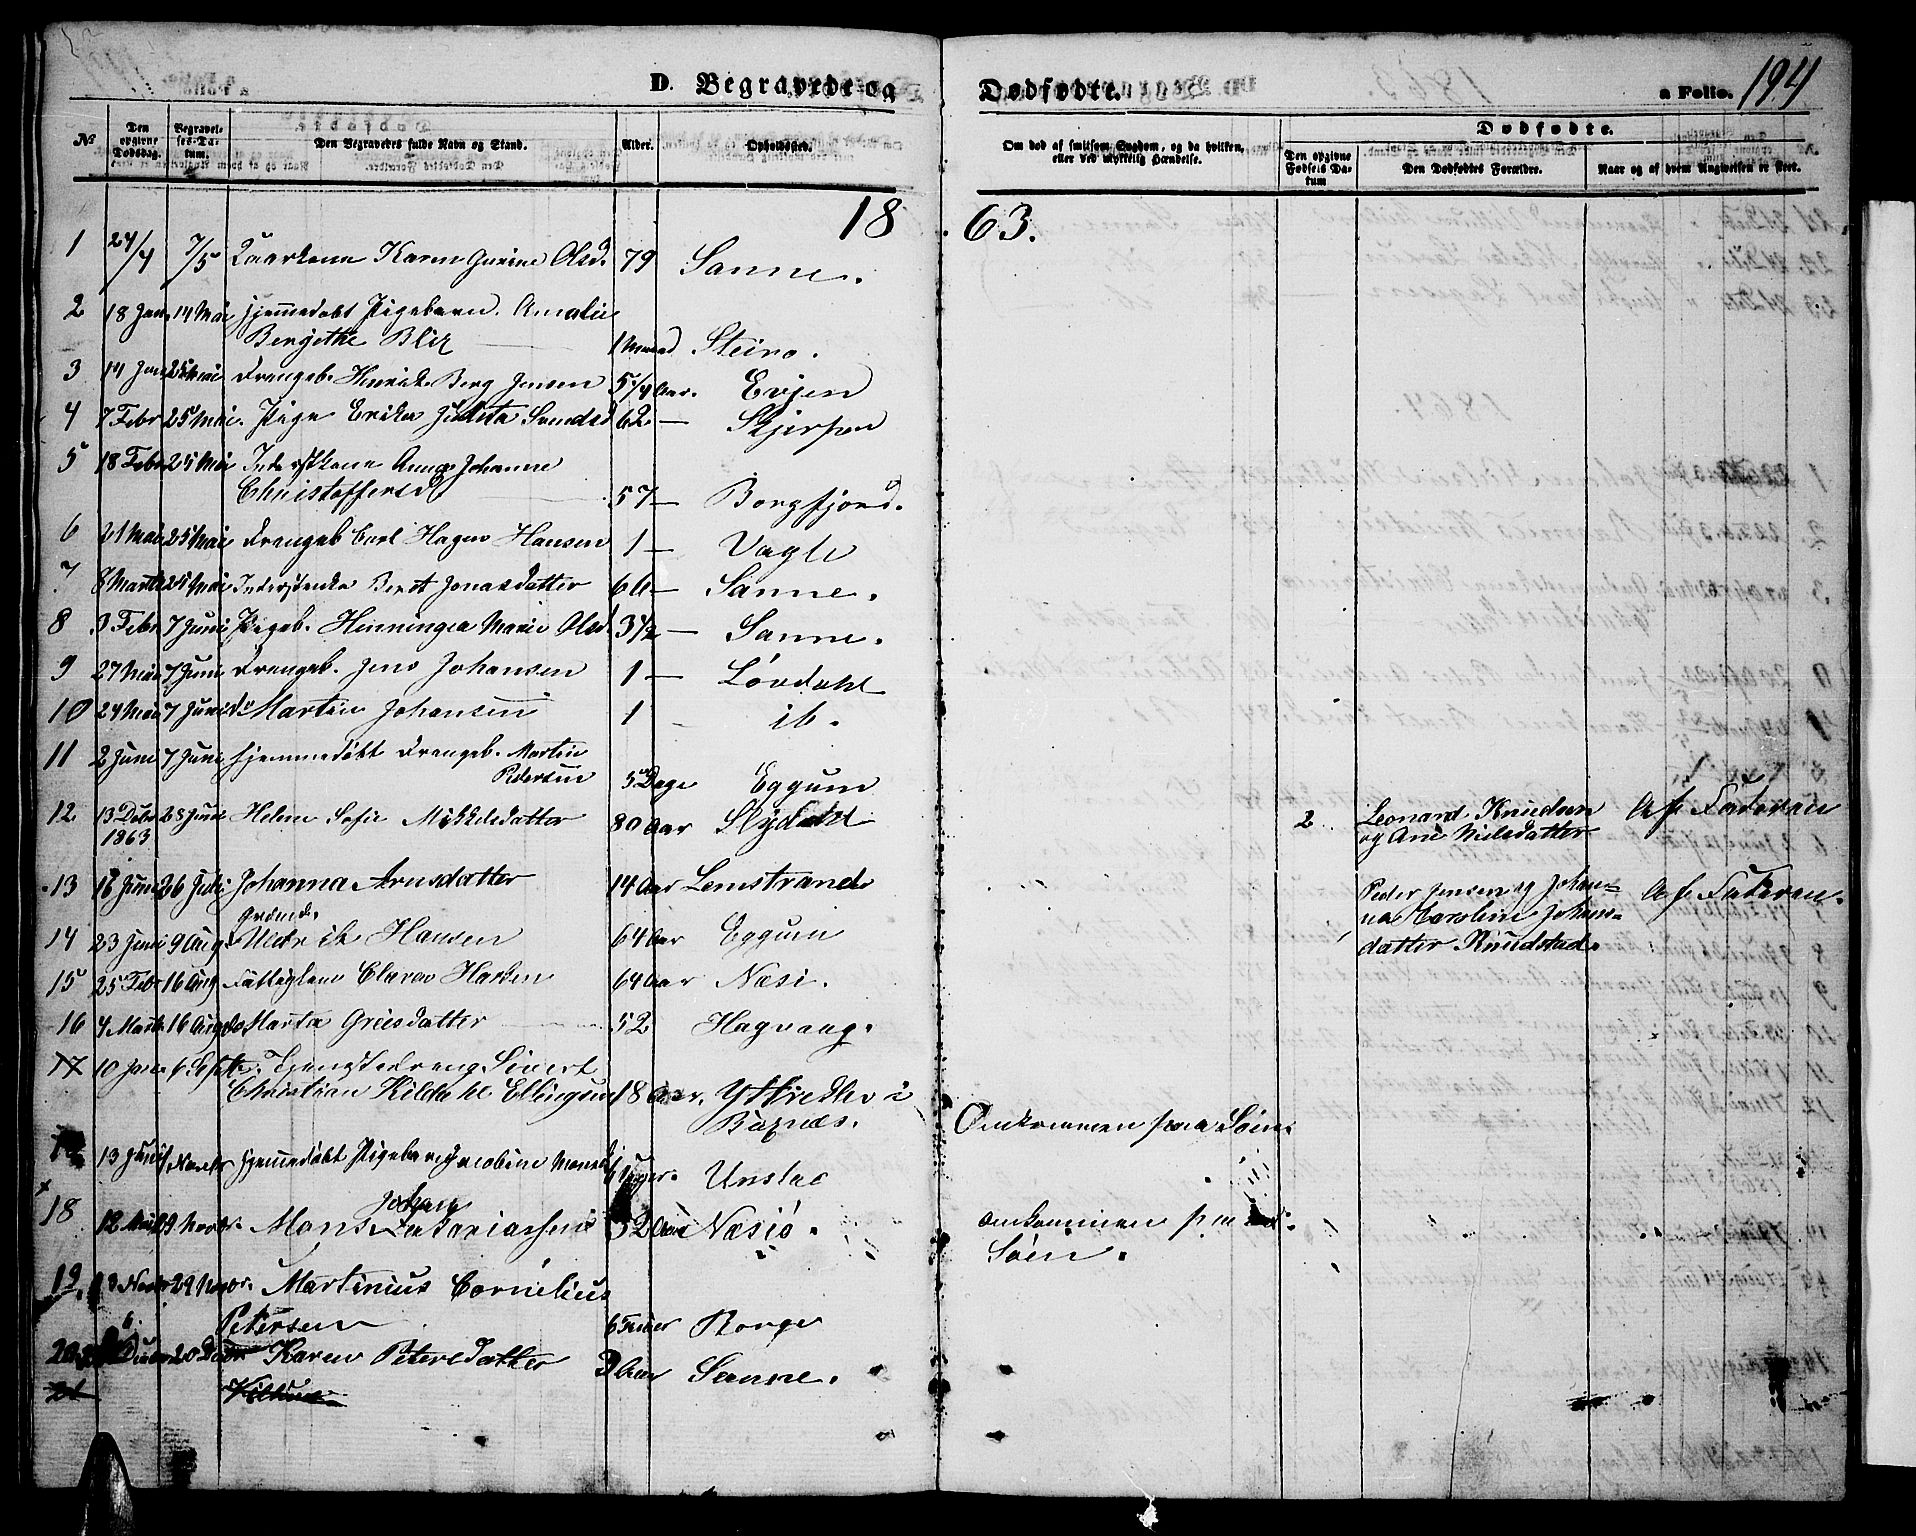 D. Begravede og Dødfødte.
a Folio. 194
№ Den opgivne Dødsdag. Begravelses-Datum. Den Begravedes fulde Navn og Stand. Alder. Opholdssted. Om død af smitsom Sygdom, og da hvilken, eller ved ulykkelig Hændelse. Dødfødte. Den opgivne Fødsels Datum Den Dødfødtes Forældre. Naar og af hvem Angivelsen er skeet.
1863.
1 24/4 7/5 Karen Gurine Olsd. 79 Sanne.
2 18 Jan 14 Mai hjemmedøbt Pigebarn. Amalie
Bergitte Blix 1 Maaned Steiro.
3 14 Jan 25 Mai Drengeb. Henrik Berg Jensen 5/4 Aar. Evjen
4 7 Febr 25 Mai. Pige Erika Judita Svendsd 62 — Skjerpen
5 18 Febr 25 Mai Inderstkone Anna Johanne
Christoffersd 57 — Borgfjord.
6 21 Mai 25 Mai Drengeb Carl Hagen Hansen 1 — Vagle
7 8 Marts 25 Mai Inderstenke Beret Jonasdatter 66 — Sanne.
8 3 Febr 7 Juni Pigeb. Henningea Marie Olsd 3 1/2 — Sanne.
9 27 Mai 7 Juni Drengeb. Jens Johansen 1 — Løvdahl
10 24 Mai 7 Juni do Martin Johansen 1 ib.
11 2 Juni 7 Juni hjemmedøbt Drengeb. Martin
Pedersen 5 Dage Eggum
12 13 Debr 28 Juni Helene Sofie Mikkelsdatter 80 Aar 2 Leonard Knudsen Af Faderen
1863 og Ane Nilsdatter
13 16 Juni 26 Juli Johanna Arnsdatter 14 Aar Lemstrand Peder Jensen og Johan- Af Faderen.
na Caroline Johans-
datter Knudstad.
14 23 Juni 9 Aug Hansen 64 Aar Eggum
15 25 Febr 16 Aug Fattiglem Hansen 64 Aar Næsi.
16 4 Marts 16 Aug do Marta Griisdatter 52 Hagvaag.
17 10 Jan 6 Septr. Tjenestedreng Sivert
Christian Kildahl Ellingsen 18 Aar. i
Buxnæs. Omkommen paa Søen.
13 hjemmedøbt Pigebarn Jacobine Unstad
18 29 Novbr. Mons Johan Zakariassen 52 Aar Næsiø. omkommen paa
Søen.
19. 13 Novbr 29 Novbr. Martinius Cornelius
Petersen 6 Borge
20 6 20 Debr Karen Petersdatter 3 Aar Sanne.
21